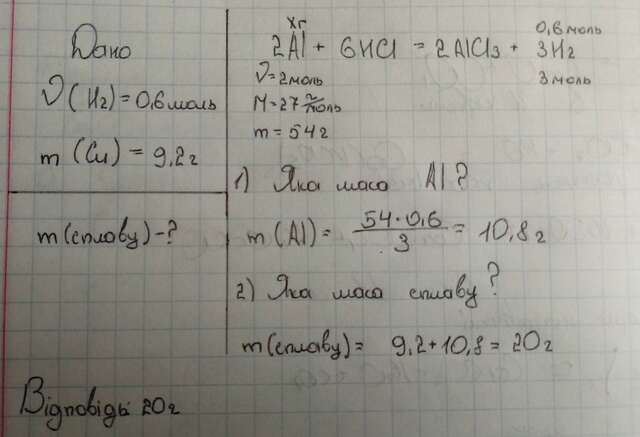 Дано
ν(H2) = 0,6 моль
m(Cu) = 9,2 г
m(сплаву) - ?
xг
0,6 моль
2Al + 6HCl = 2AlCl3 + 3H2
ν = 2 моль
3 моль
M = 27 г/моль
m = 54 г
1) Яка маса Al?
m(Al) = 54·0,6/3 = 10,8 г
2) Яка маса сплаву?
m(сплаву) = 9,2 + 10,8 = 20 г
Відповідь 20 г